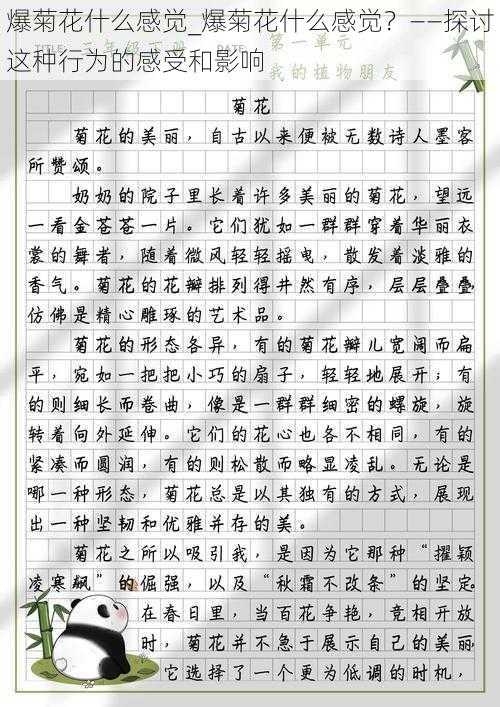 爆菊花什么感觉_爆菊花什么感觉？——探讨
这种行为的感受和影响
TITLE 三年级下册 DATE 第一单元
我的植物朋友
菊花
菊花的美丽，自古以来便被无数诗人墨客
所赞颂。
奶奶的院子里长着许多美丽的菊花，望远
一看金苍苍一片。它们犹如一群群穿着华丽衣
裳的舞者，随着微风轻轻摇曳，散发着淡雅的
香气。菊花的花瓣排列得井然有序，层层叠叠，
仿佛是精心雕琢的艺术品。
菊花的形态各异，有的菊花瓣儿宽阔而扁
平，宛如一把把小巧的扇子，轻轻地展开；有
的则细长而卷曲，像是一群群细密的螺旋，旋
转着向外延伸。它们的花心也各不相同，有的
紧凑而圆润，有的则松散而略显凌乱。无论是
哪一种形态，菊花总是以其独有的方式，展现
出一种坚韧和优雅并存的美。
菊花之所以吸引我，是因为它那种“擢颖
凌寒飙”的倔强，以及“秋霜不改条”的坚定。
在春日里，当百花争艳，竞相开放
时，菊花并不急于展示自己的美丽，
它选择了一个更为低调的时机，